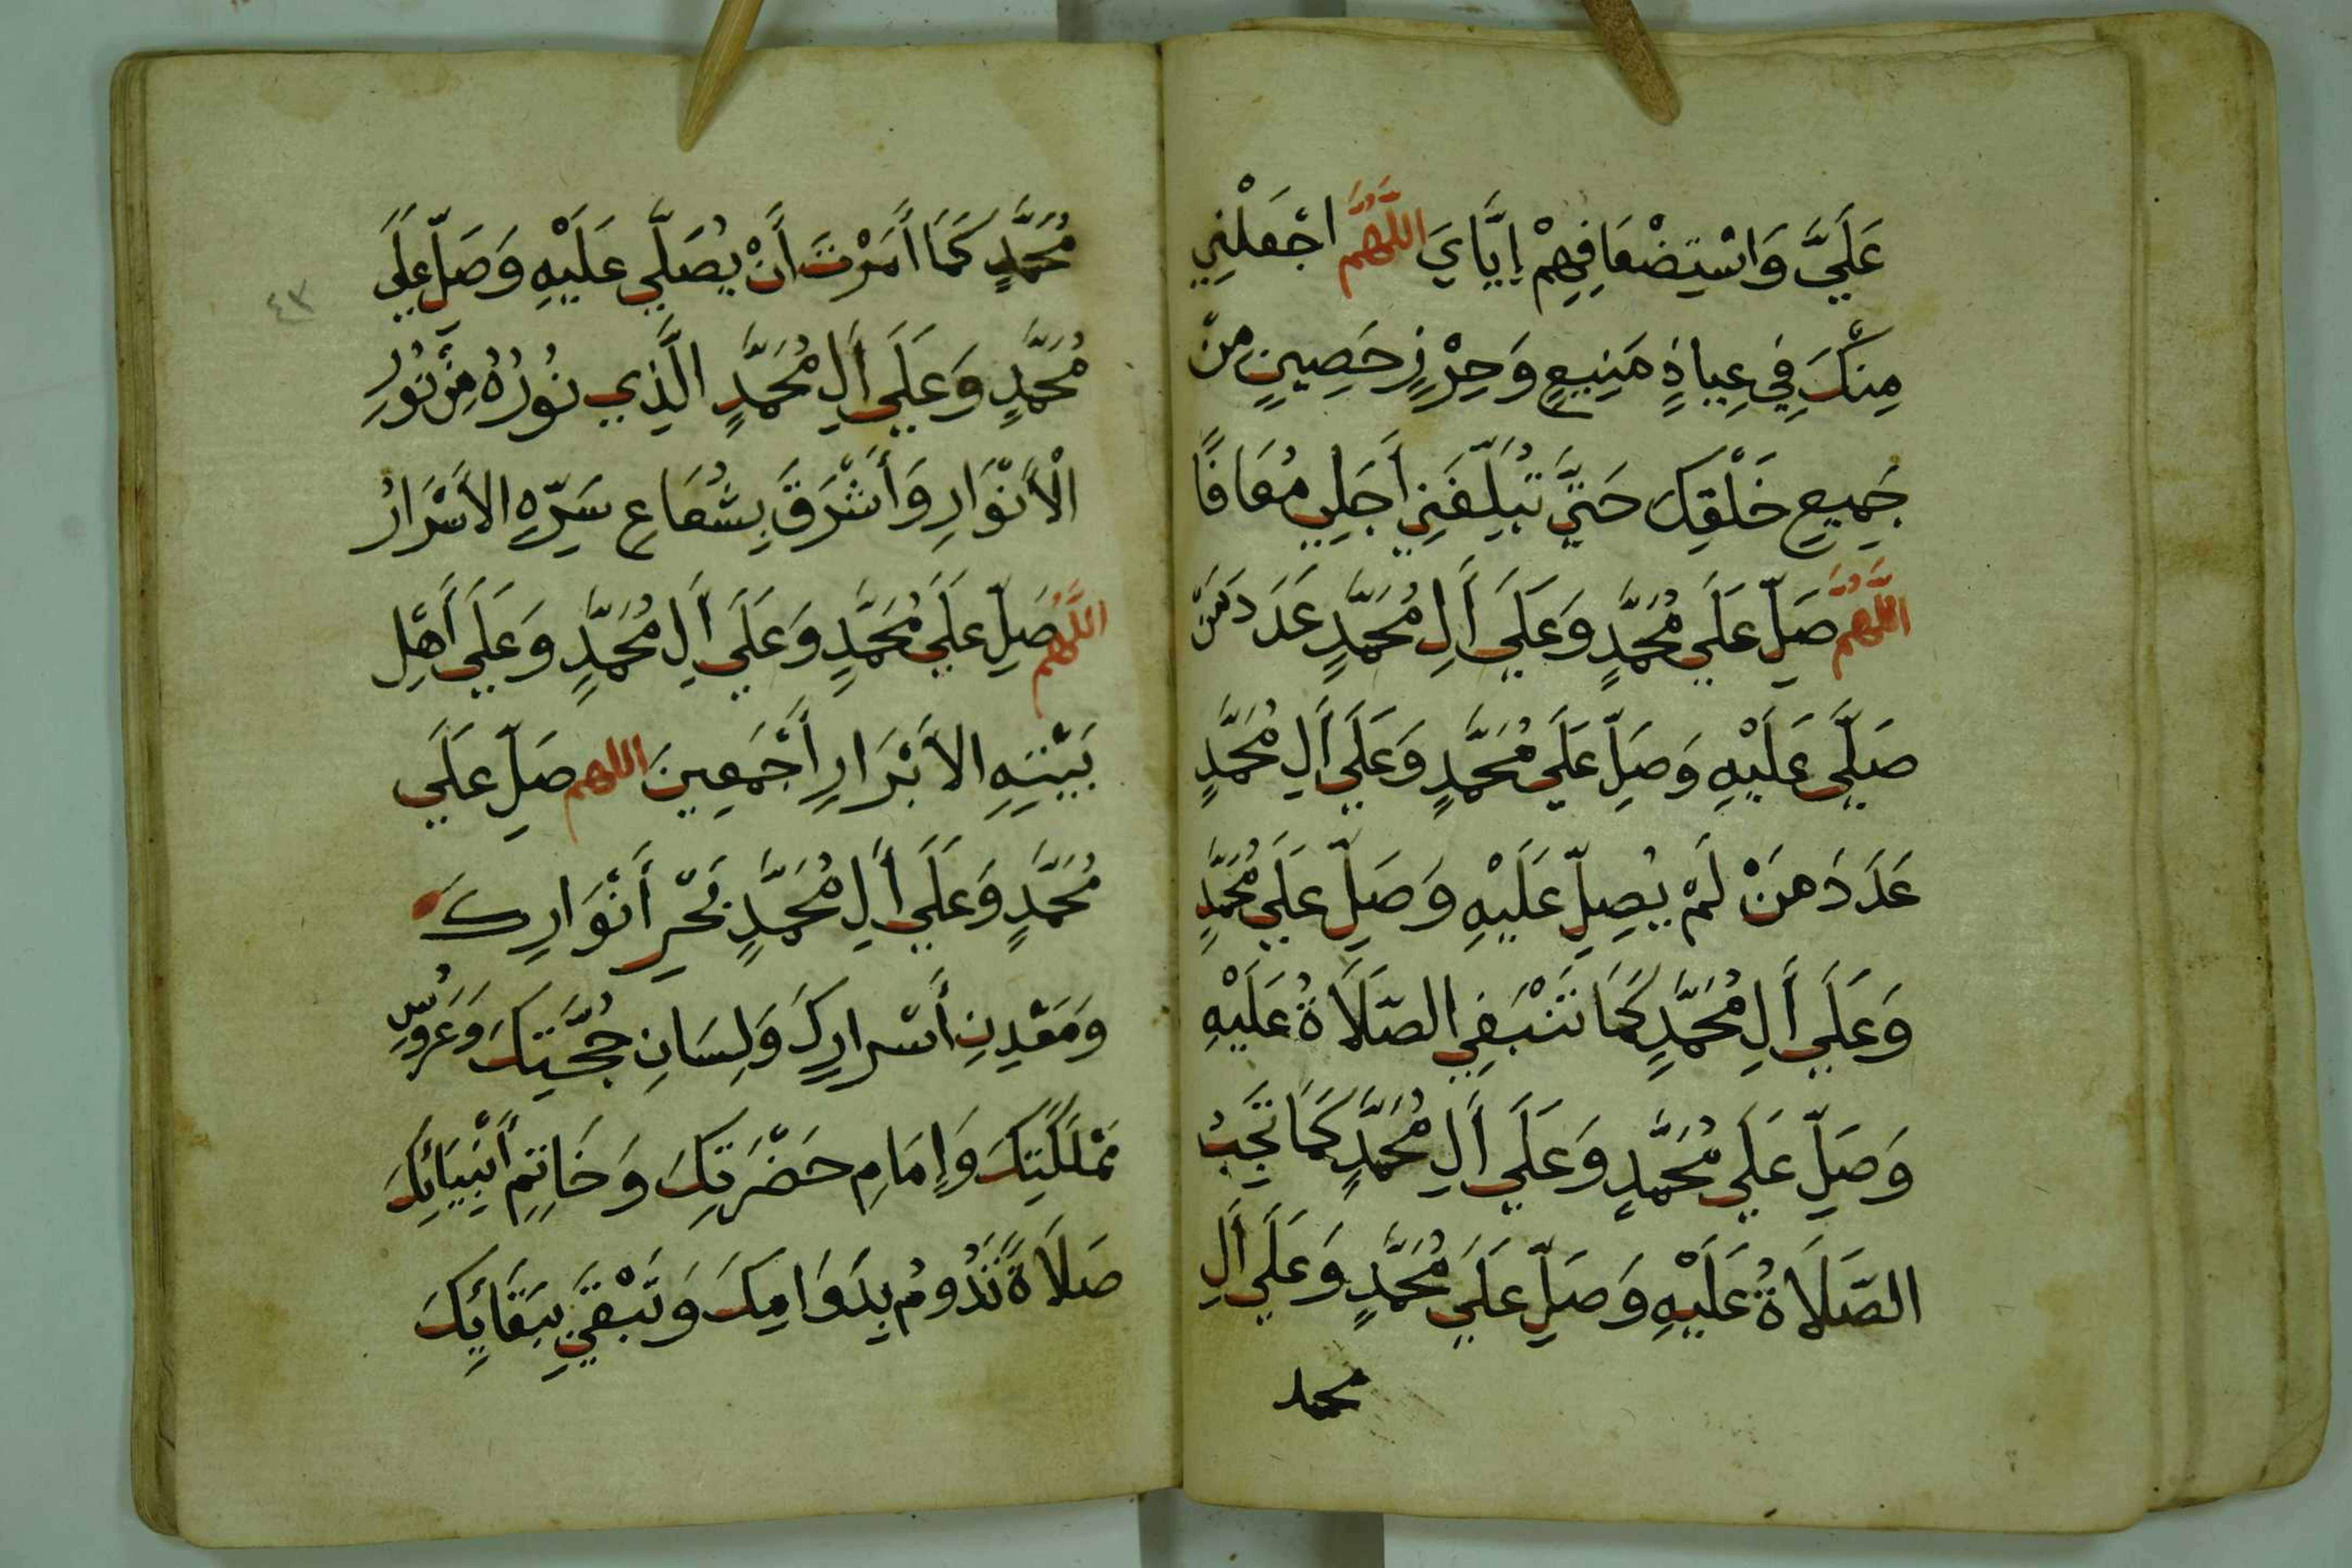 عَلَيَّ وَاسْتِضْعَافِهِمْ إِيَّايَ اللَّهُمَّ اجْعَلْنِي
مِنْكَ فِي عِيَاذٍ مَنِيعٍ وَحِرْزٍ حَصِينٍ مِنْ
جَمِيعِ خَلْقِكَ حَتَّي تُبَلِّغَنِي أَجَلِي مُعَافًا
اللَّهُمَّ صَلِّ عَلَي مُحَمَّدٍ وَعَلَي أَلِ مُحَمَّدٍ عَدَدَ مَنْ
صَلَّي عَلَيْهِ وَصَلِّ عَلَي مُحَمَّدٍ وَعَلَي أَلِ مُحَمَّدٍ
عَدَدَ مَنْ لَمْ يُصَلِّ عَلَيْهِ وَصَلِّ عَلَي مُحَمَّدٍ
وَعَلَي أَلِ مُحَمَّدٍ كَمَا تَنْبَغِي الصَّلَاةُ عَلَيْهِ
وَصَلِّ عَلَي مُحَمَّدٍ وَعَلَي أَلِ مُحَمَّدٍ كَمَا تَجِبُ
الصَّلَاةُ عَلَيْهِ وَصَلِّ عَلَي مُحَمَّدٍ وَعَلَي أَلِ
محمد
مُحَمَّدٍ كَمَا أَمَرْتَ أَنْ يُصَلَّي عَلَيْهِ وَصَلِّ عَلَي
٤٣
مُحَمَّدٍ وَعَلَي أَلِ مُحَمَّدٍ الَّذِي نُورُهُ مِنْ نُورِ
الْأَنْوَارِ وَأَشْرَقَ بِشُعَاعِ سِرِّهِ الأَسْرَارُ
اللَّهُمَّ صَلِّ عَلَي مُحَمَّدٍ وَعَلَي أَلِ مُحَمَّدٍ وَعَلَي أَهْلِ
بَيْتِهِ الأَبْرَارِ أَجْمَعِينَ اللهم صَلِّ عَلَي
مُحَمَّدٍ وَعَلَي أَلِ مُحَمَّدٍ بَحْرِ أَنْوَارِكَ
وَمَعْدِنِ أَسْرارِكَ وَلِسَانِ حُجَّتِكَ وَعَرُوسِ
مَمْلَكَتِكَ وَإِمَامِ حَضْرَتِكَ وَخَاتِمِ أَنْبِيَائِكَ
صَلَاةً تَدُومُ بِدَوَامِكَ وَتَبْقَي بِبَقَائِكَ